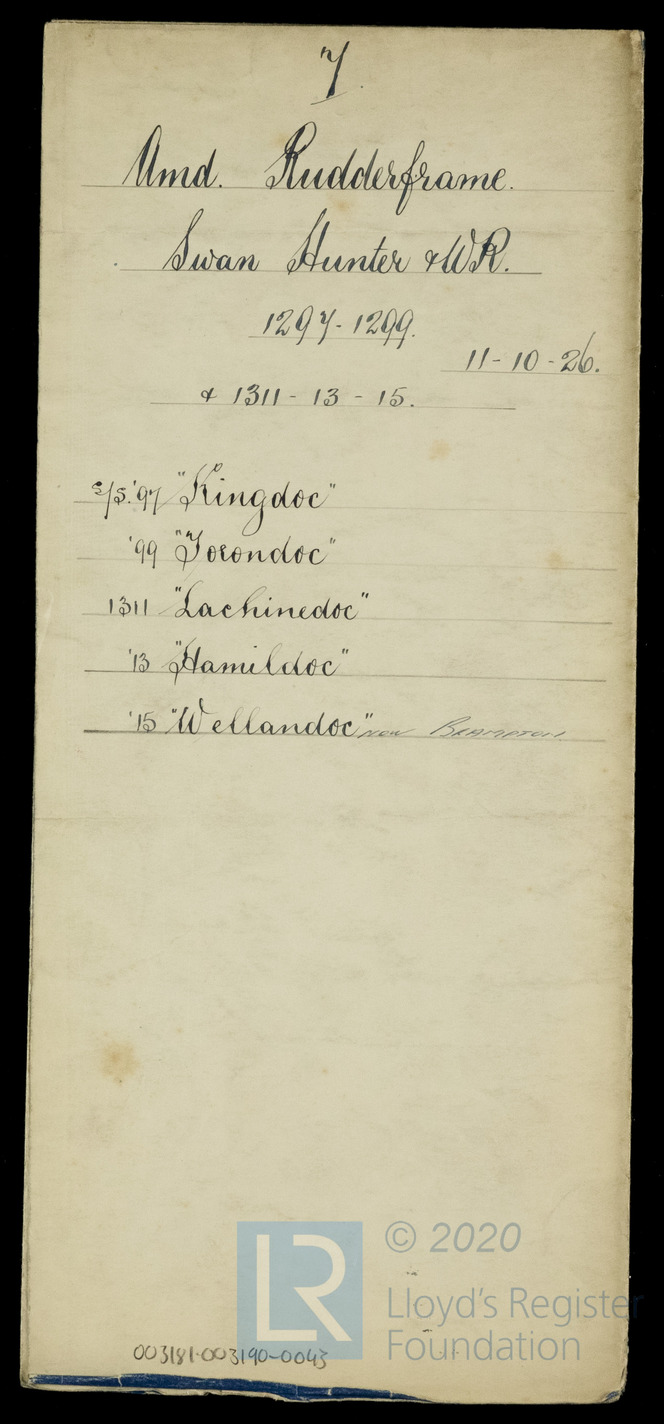 7
Amd. Rudderframe.
Swan Hunter & WR.
1297-1299.
11-10-26.
& 1311-13-15.
S/S. '97 "Kingdoc"
'99 "Torondoc"
1311 "Lachinedoc"
'13 "Hamildoc"
'15 "Wellandoc" NOW BRAMPTON.
LR
© 2020
Lloyd's Register
Foundation
003181-003190-0043